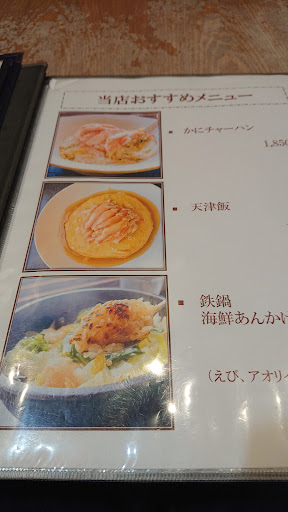 当店おすすめメニュー
▪ かにチャーハン
1,850
▪ 天津飯
▪ 鉄鍋
海鮮あんかけ
（えび、アオリイ